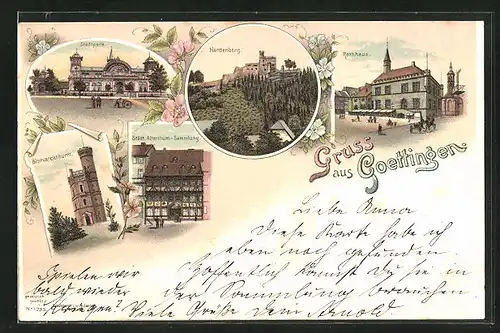 Stadtpark.
Hardenberg.
Rathhaus.
Bismarckthurm.
Städt. Alterthum-Sammlung.
Gruss
aus Goettingen
Liebe Anna
Diese Karte habe ich
eben noch gefunden.
Hoffentlich kannst Du sie in
der Sammlung brauchen
Viele Grüße Dein Arnold
Spielen wir
bald wieder